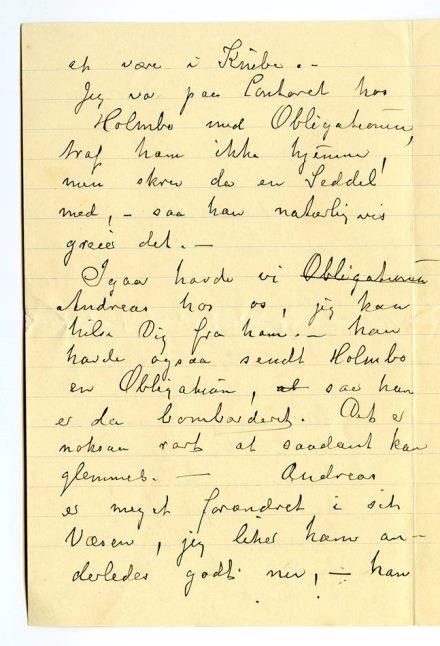 at være i Knibe. -
Jeg var paa Contoret hos
Holmbo med Obligationen,
traf ham ikke hjemme,
men skrev da en Seddel
med, - saa han naturligvis
greies det. -
Igaar havde vi Obligationen
Andreas hos os, jeg kan
hilse Dig fra ham. - han
havde ogsaa sendt Holmbo
en Obligation, at saa han
er da bombarderet. Det er
noksaa rart at saadant kan
glemmes. - Andreas
er meget forandret i sit
Væsen, jeg liker ham an-
derledes godt nu, - han